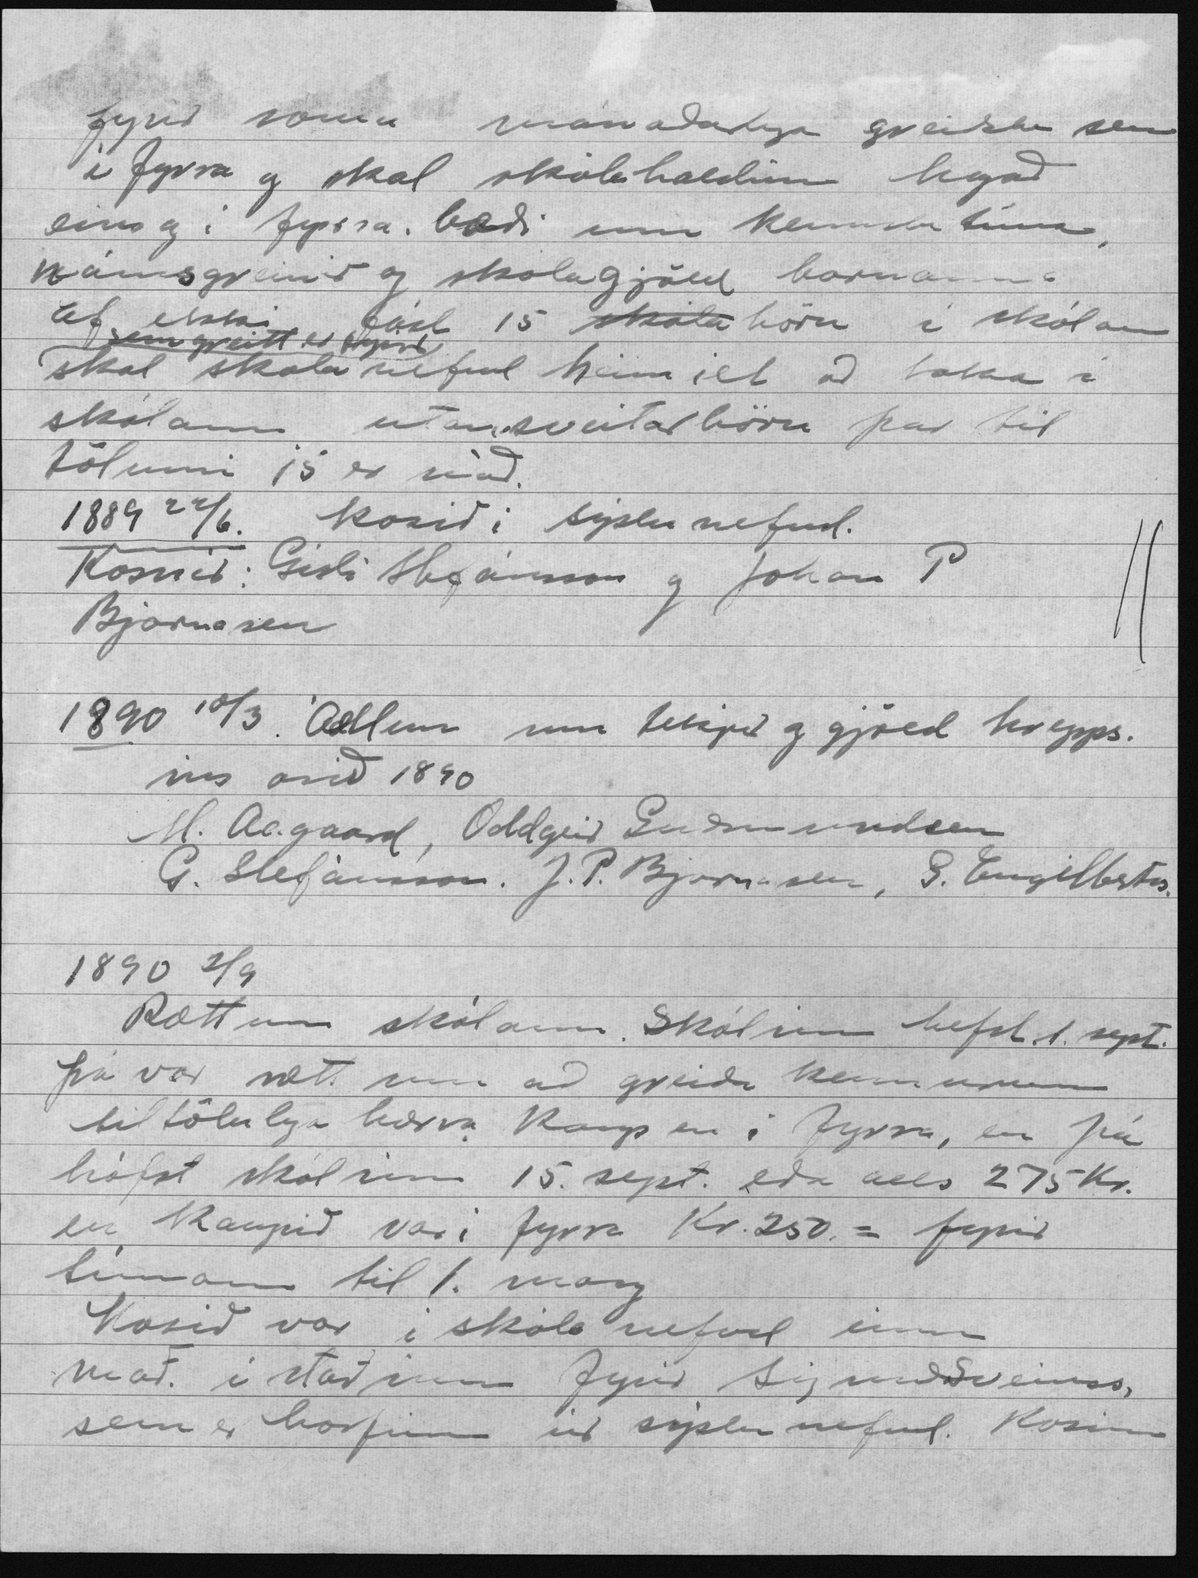 fyrir sama mánaðarlega greiðslu sem
í fyrra og skal skólahaldinu hagað
eins og í fyrra. bæði um kennslu tíma,
námsgreinir og skólagjöld barnanna
ef ekki fást 15 skóla börn í skólann
sem greitt er fyrir
skal skólanefnd heimilt að taka í
skólann utansveitarbörn þar til
tölunni 15 er náð.
1889 22/6. Kosið í sýslunefnd.
Kosnir: Gísli Stefánsson og Johan P
Bjarnasen
1890 18/3. Áætlun um tekjur og gjöld hrepps-
ins árið 1890
M. Aagaard, Oddgeir Guðmundsen
G. Stefánsson. J. P. Bjarnasen, G. Engilberts.
1890 2/9
Rætt um skólann. Skólinn hefst 1. sept.
þá var rætt um að greiða kennurum
tiltölulega hærra kaup en í fyrra, en þá
hófst skólinn 15. sept. eða alls 275 Kr.
en kaupið var í fyrra Kr. 250. = fyrir
tímann til 1. marz
Kosið var í skólanefnd einn
mað. í staðinn fyrir Sigurð Sveinss,
sem er horfinn úr sýslunefnd. Kosinn